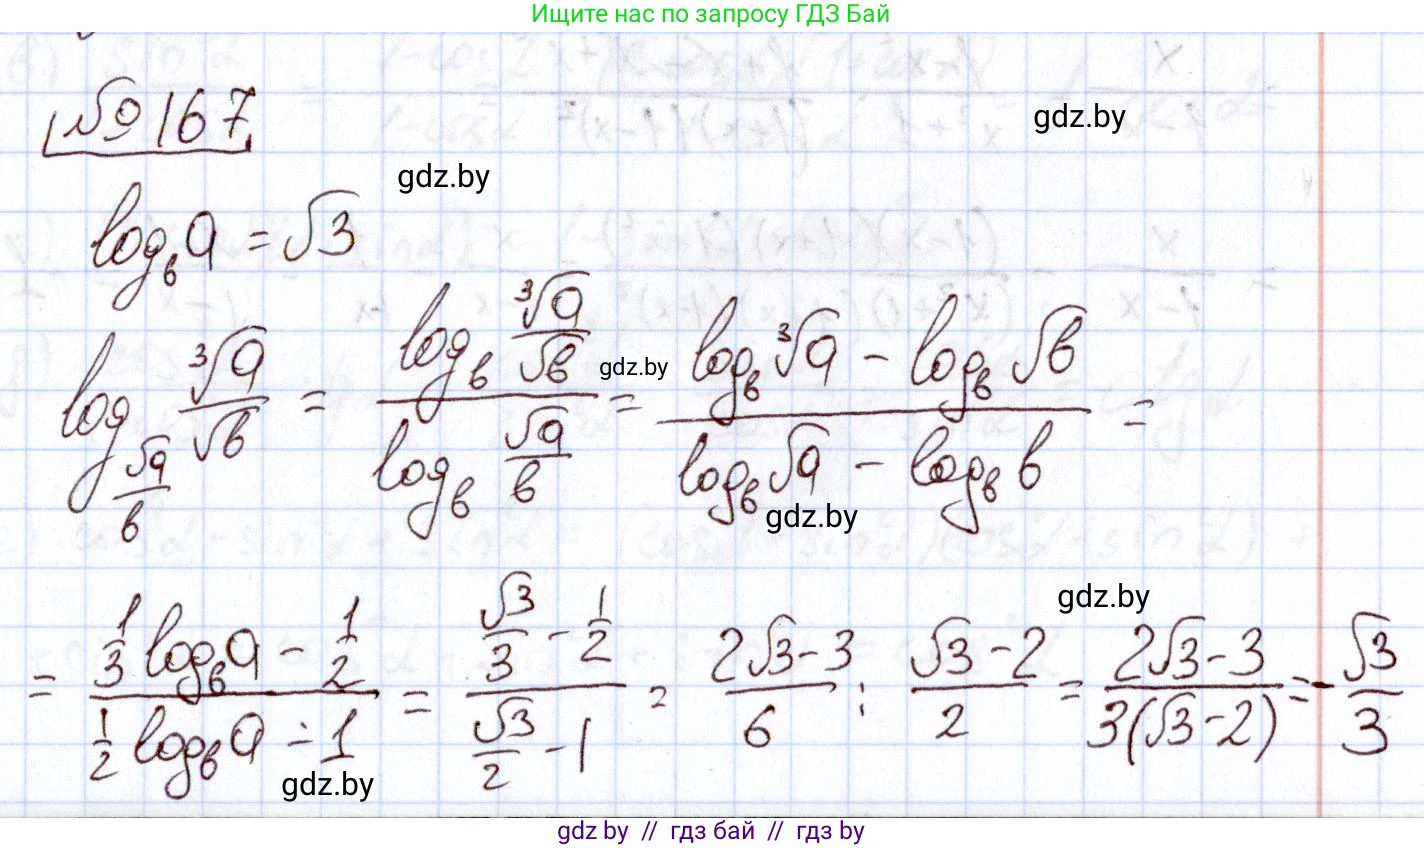 Ищите нас по запросу ГДЗ Бай
№167
gdz.by
gdz.by
log_в a = √3
log_(√a/в) ∛a/√в = (log_в ∛a/√в)/(log_в √a/в) = (log_в ∛a - log_в √в)/(log_в √a - log_в в) =
gdz.by
gdz.by
gdz.by
= (1/3 log_в a - 1/2)/(1/2 log_в a - 1) = (√3/3 - 1/2)/(√3/2 - 1) = (2√3-3)/6 : (√3-2)/2 = (2√3-3)/(3(√3-2)) = -√3/3
gdz.by
gdz by // гдз бай // gdz by